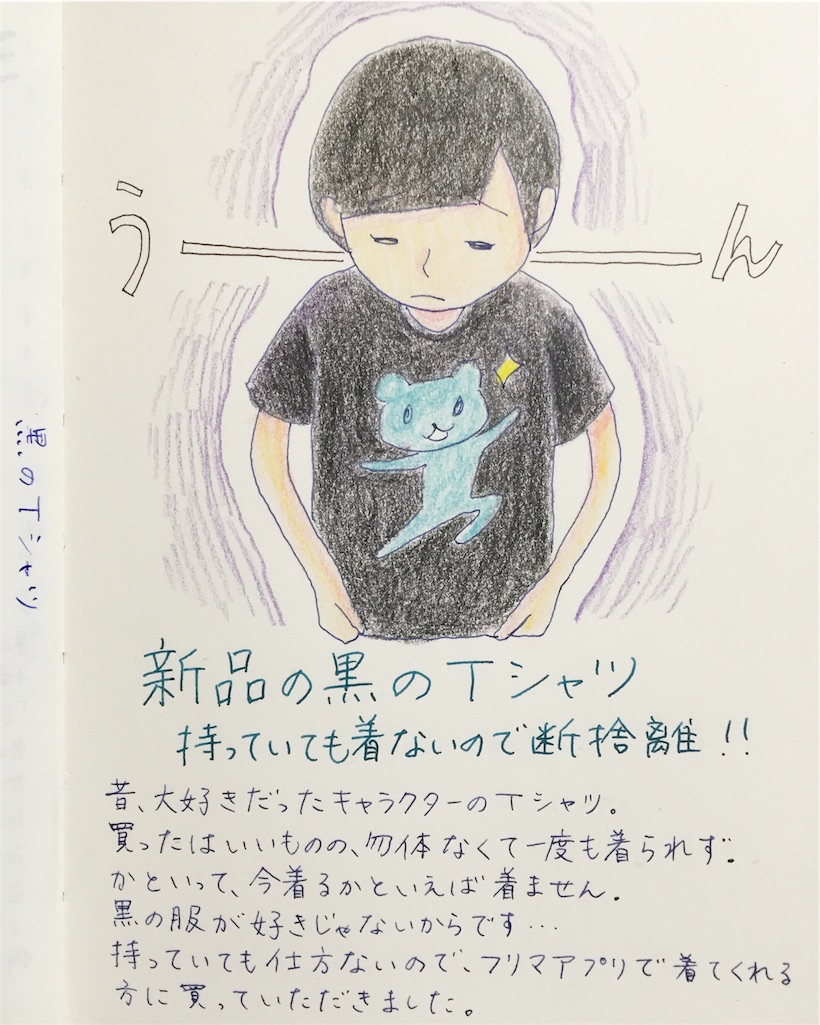 うーーん
黒のTシャツ
新品の黒のTシャツ
持っていても着ないので断捨離!!
昔、大好きだったキャラクターのTシャツ。
買ったはいいものの、勿体なくて一度も着られず。
かといって、今着るかといえば着ません。
黒の服が好きじゃないからです…
持っていても仕方ないので、フリマアプリで着てくれる
方に買っていただきました。